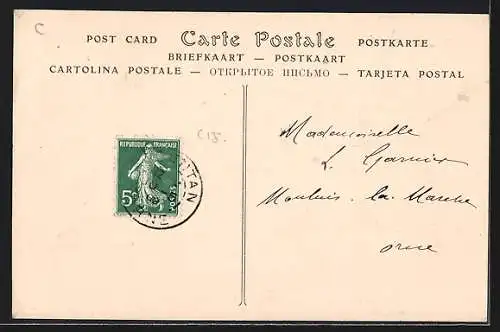 C
POST CARD Carte Postale POSTKARTE
BRIEFKAART — POSTKAART
CARTOLINA POSTALE — ОТКРЫТОЕ ПИСЬМО — TARJETA POSTAL
REPUBLIQUE FRANÇAISE
5c
POSTES
Mademoiselle
L. Garnier
Moulins-la-Marche
Orne